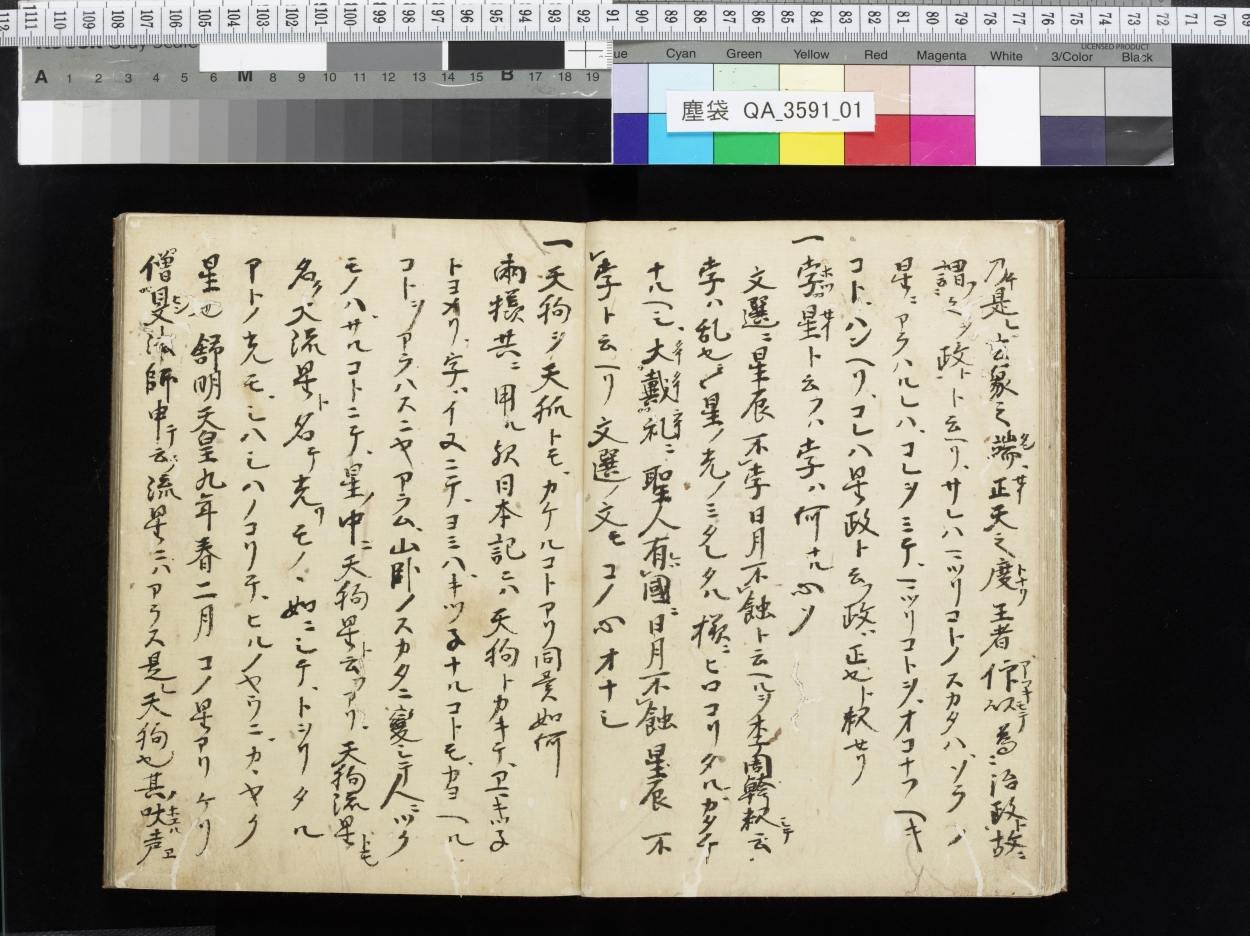 乃是玄象之端正天之度王者作以為治政故
謂之政ト云ヘリサレハニツリコトノスカタハソラノ
星ニアラハルレハコレヲミテニツリコトヲオコナフヘキ
コトハンヘリコレハ星政ト云政ハ正也ト釈セリ
一孛星ト云フハ孛ハ何ナル心ソ
文選ニ星辰不孛日月不蝕ト云ヘルヲ李周翰釈云
孛ハ乱也星ノ光ノミタレタル様ニヒロコリタルカタチ
ナルヘシ大戴礼ニ聖人有國日月不蝕星辰不
孛ト云ヘリ文選ノ文モコノ心オナシ
一天狗ヲ天狐トモカケルコトアリ同異如何
兩様共ニ用ル歟日本記ニハ天狗トカキテアマキツ子
トヨメリ字ハイヌニテヨミハキツ子ナルコトモカヨヘル
コトヲアラハスニヤアラム山臥ノスカタニ變シテ人ニツク
モノハサルコトニテ星ノ中ニ天狗星ト云フアリ天狗流星トモ
名ク大流星ト名テ光リモノヽ如ニシテトヲリタル
アトノ光モシハシハノコリテヒルノヤウニカヽヤク
星也舒明天皇九年春二月コノ星アリケリ
僧旻法師申テ云流星ニハアラス是天狗也其吠声
Cyan
Green
Yellow
Red
Magenta
White
3/Color
Black
LICENSED PRODUCT
A 1 2 3 4 5 6 M 8 9 10 11 12 13 14 15 B 17 18 19
塵袋 QA_3591_01